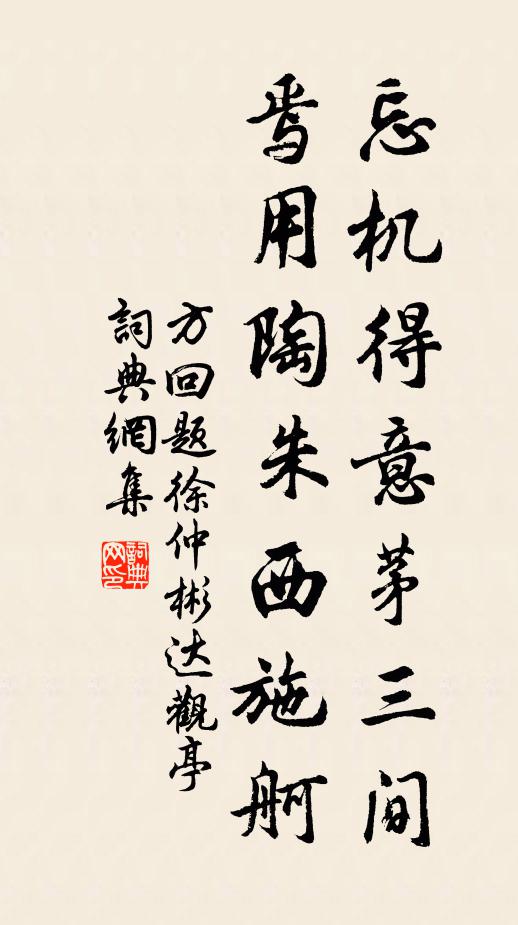 忘机得意茅三间
焉用陶朱西施舸
方回题徐仲彬达觀亭
詞典網集
詞典网印